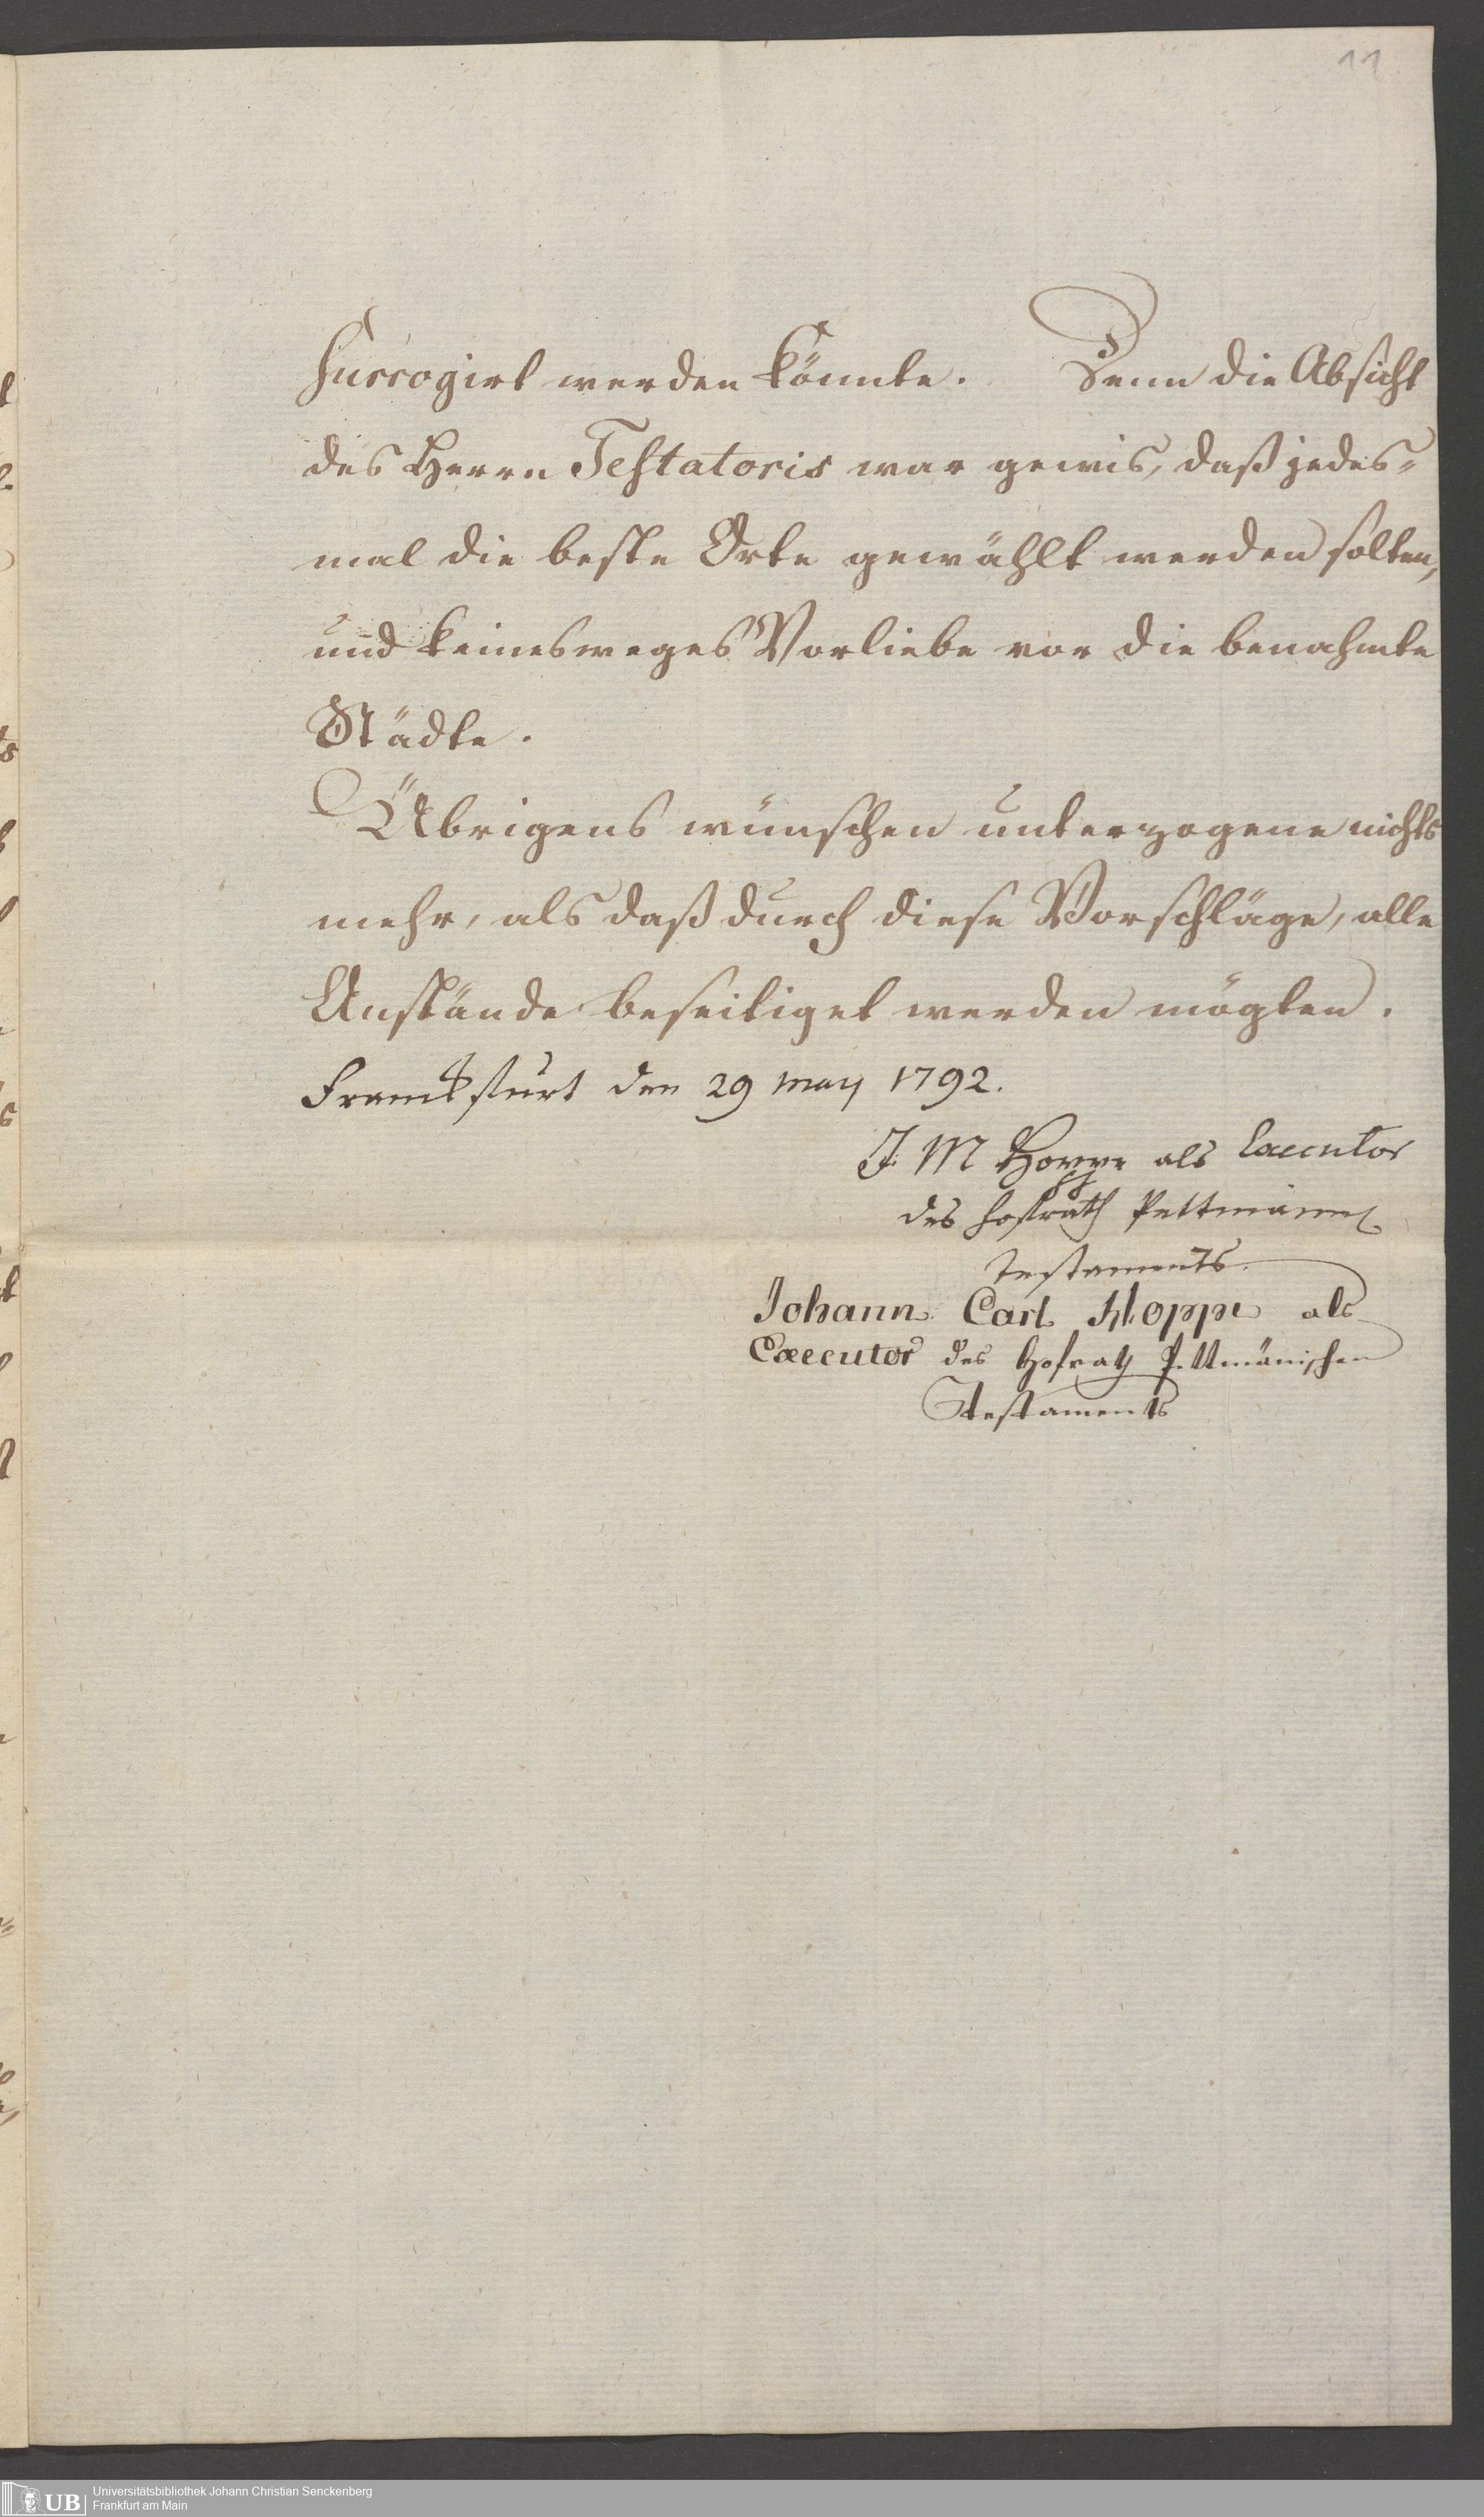 11
surrogirt werden könnte. Denn die Absicht
des Herrn Testatoris war gewis, daß jedes-
mal die beste Orte gewählt werden solten,
und keinesweges Vorliebe vor die benahmte
Städte.
Übrigens wünschen unterzogene nichts
mehr, als daß durch diese Vorschläge, alle
Anstände beseitiget werden mögten.
Franckfurt den 29 may 1792.
J. M Hoppe als Executor
des Hofrath Pettmann
Testaments.
Johann Carl Hoppe als
Executor des Hofrath Pettmänischen
Testaments
UB
Universitätsbibliothek Johann Christian Senckenberg
Frankfurt am Main